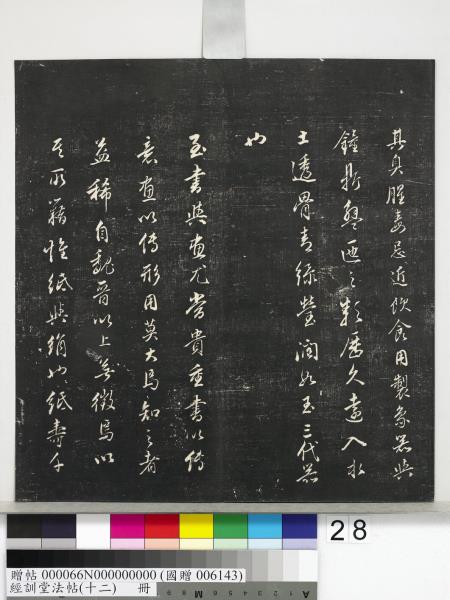 其臭腥妄忌近飲食用製為器與
鐘鼎盤匜之類歷久遠入水
土透骨青綠瑩潤如玉三代器
也
至書與畫尤當貴重書以傳
意畫以傳形用莫大焉知之者
益稀自魏晉以上無徵焉以
其所籍惟紙與絹也紙壽千
28
贈帖 000066N000000000 (國贈 006143)
經訓堂法帖(十二) 冊